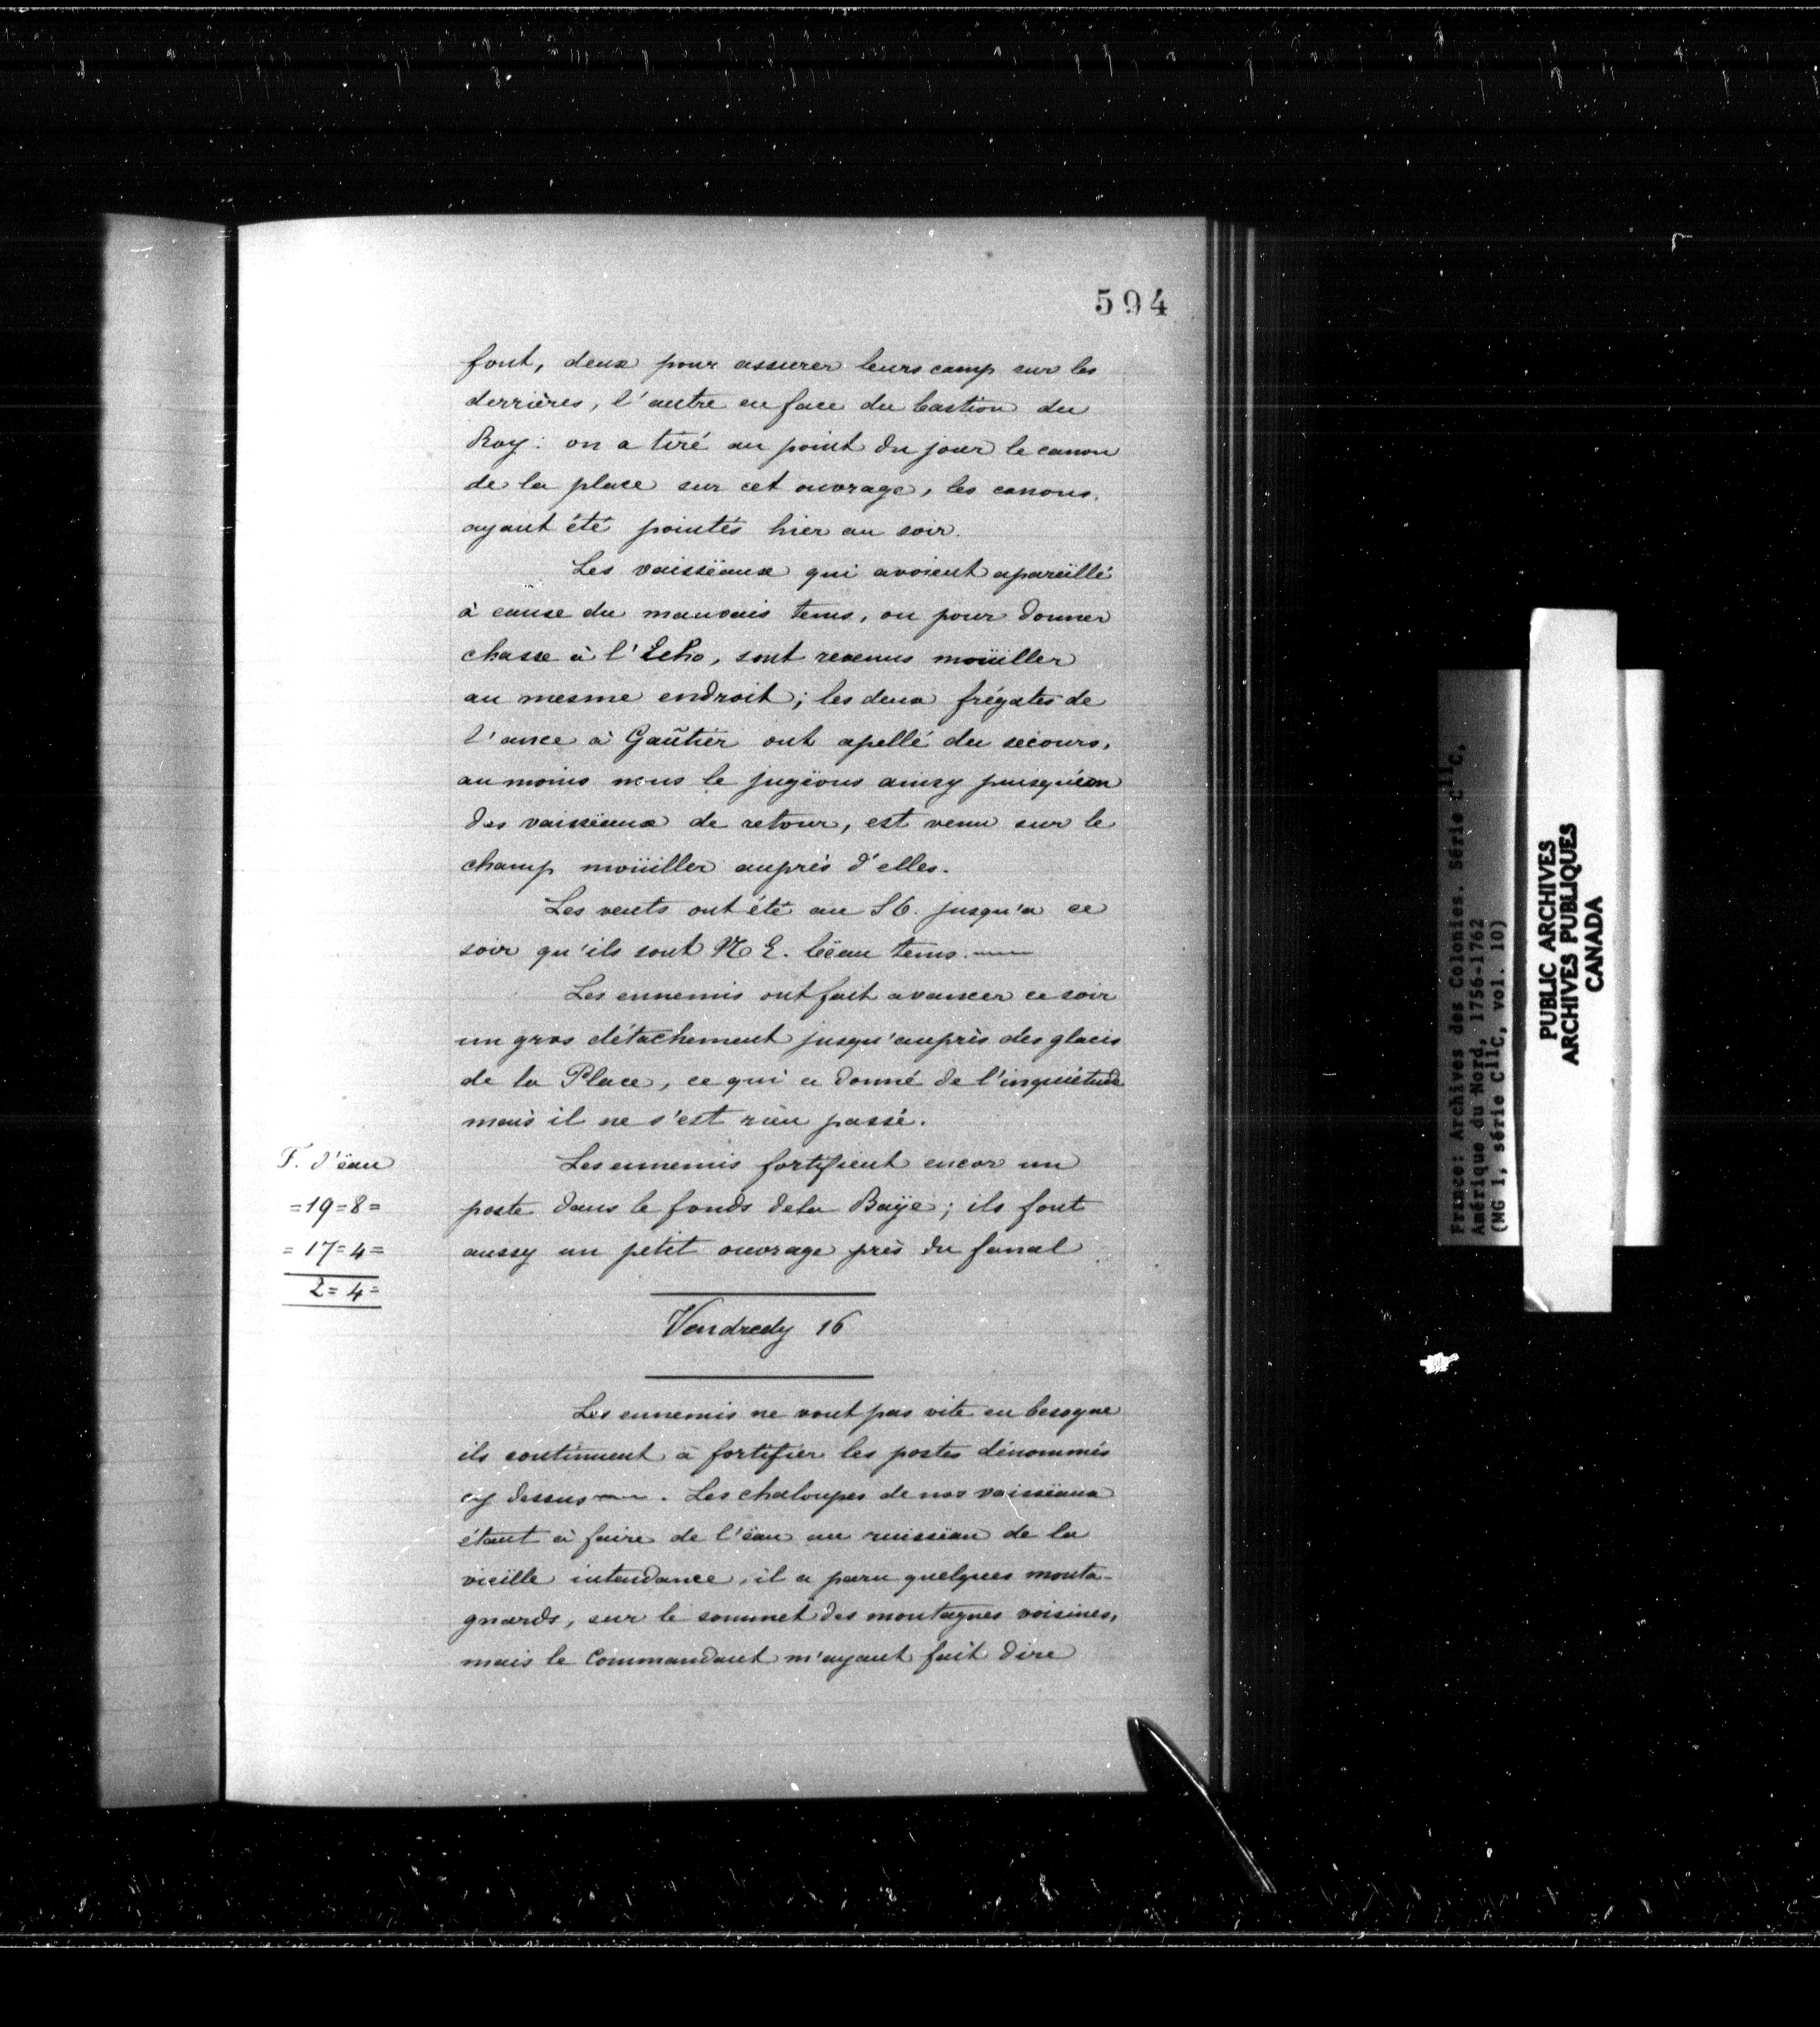 594
font, deux pour assurer leurs camp sur les
derrières, l'autre en face du bastion du
Roy: on a tiré au point du jour le canon
de la place sur cet ouvrage, les canons
ayant été pointés hier au soir.
Les vaissëaux qui avoient apareillé
à cause du mauvais tems, ou pour donner
chasse à l'Echo, sont revenus moüiller
au mesme endroit; les deux frégates de
l'ance à Gautier ont apellé du secours,
au moins nous le jugions ainsy puisqu'un
des vaissëaux de retour, est venu sur le
champ moüiller auprès d'elles.
Les vents ont été au S6. jusqu'a ce
soir qu'ils sont N E. bëau tems.
Les ennemis ont fait avancer ce soir
un gros détachement jusqu'auprès des glacis
de la Place, ce qui a donné de l'inquiétude
mais il ne s'est rien passé.
F. d'ëau
=19=8=
=17=4=
2=4=
Les ennemis fortifient encor un
poste dans le fonds dela Baÿe; ils font
aussy un petit ouvrage près du fanal
Vendredy 16
Les ennemis ne vont pas vite en besogne
ils continuent à fortifier les postes dénommés
cy dessus. Les chaloupes de nos vaissëaux
étant à faire de l'ëau au ruissëau de la
vieille intendance, il a paru quelques monta-
gnards, sur le sommet des montagnes voisines,
mais le Commandant m'ayant fait dire
France: Archives des Colonies. Série C11C,
Amérique du Nord, 1756-1762
(MG 1, série C11C, vol. 10)
PUBLIC ARCHIVES
ARCHIVES PUBLIQUES
CANADA